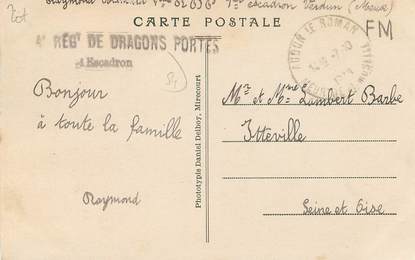 Raymond
escadron Verdun (Meuse)
CARTE POSTALE
FM
4e RÉGt DE DRAGONS PORTÉS
Escadron
AUDUN LE ROMAN
Bonjour
à toute la famille
Raymond
Phototypie Daniel Delboy, Mirecourt
Mr et Mme Lambert Barbe
Itteville
Seine et Oise